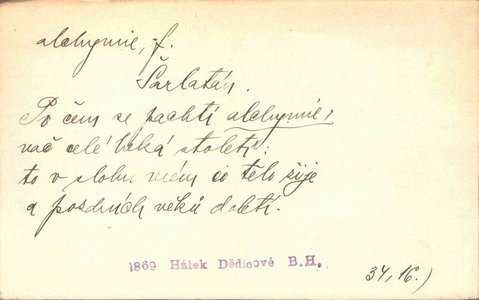 alchymie, f.
Šarlatán.
Po čem se pachtí alchymie,
nač celé čeká století:
to v slohu mém co tělo žije
a pozdních věků doletí.
1869 Hálek Dědicové B.H.
34, 16.)